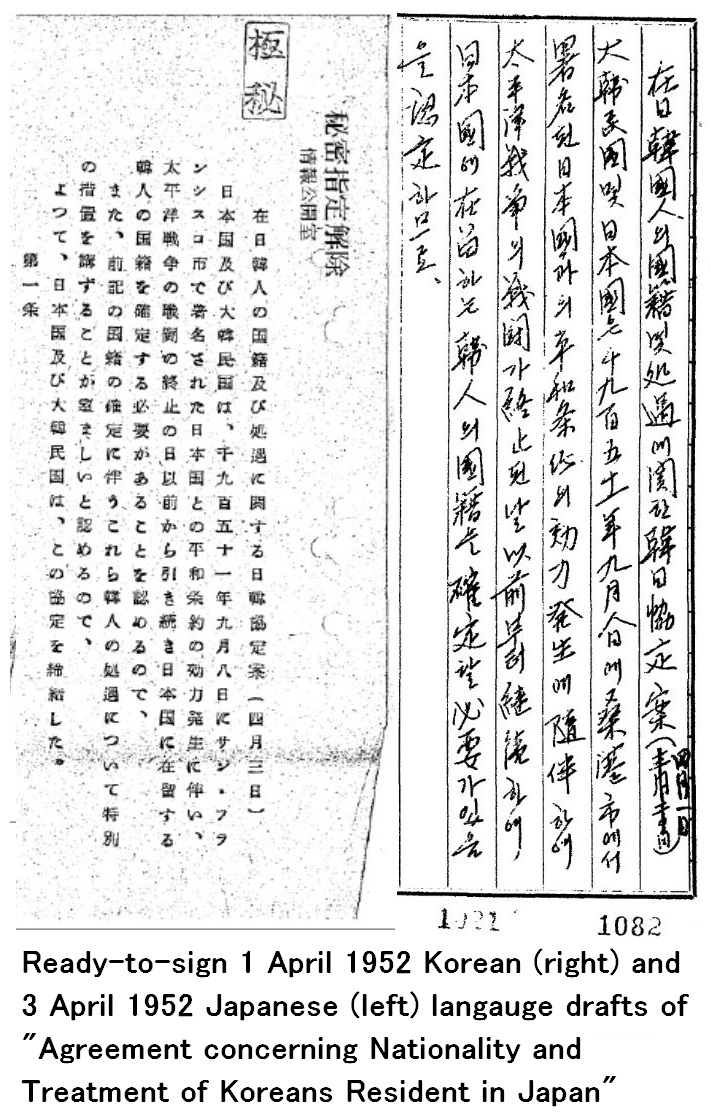 在日韓國人의國籍및処遇에関한韓日協定案(四月一日)
大韓民國및日本國은千九百五十一年九月八日에桑港市에서
署名된日本國과의平和条約의効力発生에隨伴하여
太平洋戦争의戦闘가終止된날以前부터継續하여,
日本國에在留하는韓人의國籍을確定할必要가있음
을認定하므로、
1082
極秘
秘密指定解除
情報公開室
在日韓人の国籍及び処遇に関する日韓協定案(四月三日)
日本国及び大韓民国は、千九百五十一年九月八日にサン・フラ
ンシスコ市で署名された日本国との平和条約の効力発生に伴い、
太平洋戦争の戦闘の終止の日以前から引き続き日本国に在留する
韓人の国籍を確定する必要があることを認めるので、
また、前記の国籍の確定に伴うこれら韓人の処遇について特別
の措置を講ずることが望ましいと認めるので、
よつて、日本国及び大韓民国は、この協定を締結した。
第一条
Ready-to-sign 1 April 1952 Korean (right) and
3 April 1952 Japanese (left) langauge drafts of
"Agreement concerning Nationality and
Treatment of Koreans Resident in Japan"